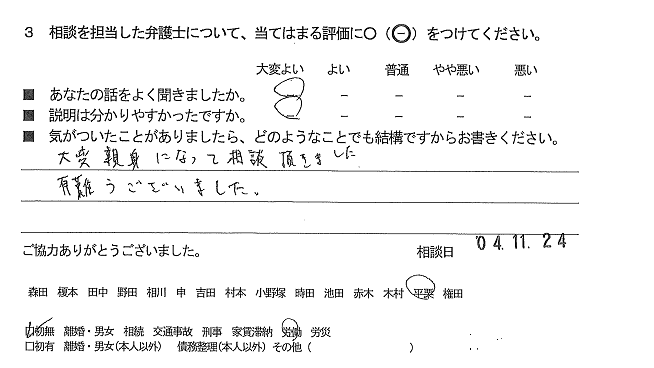 3 相談を担当した弁護士について、当てはまる評価に○(㊀)をつけてください。
大変よい よい 普通 やや悪い 悪い
■ あなたの話をよく聞きましたか。 － － － － －
■ 説明は分かりやすかったですか。 － － － － －
■ 気がついたことがありましたら、どのようなことでも結構ですからお書きください。
大変親身になって相談頂きました
有難うございました。
ご協力ありがとうございました。 相談日 '04.11.24
森田 榎本 田中 野田 相川 申 吉田 村本 小野塚 時田 池田 赤木 木村 平栗 権田
□初無 離婚・男女 相続 交通事故 刑事 家賃滞納 労働 労災
□初有 離婚・男女(本人以外) 債務整理(本人以外) その他( )